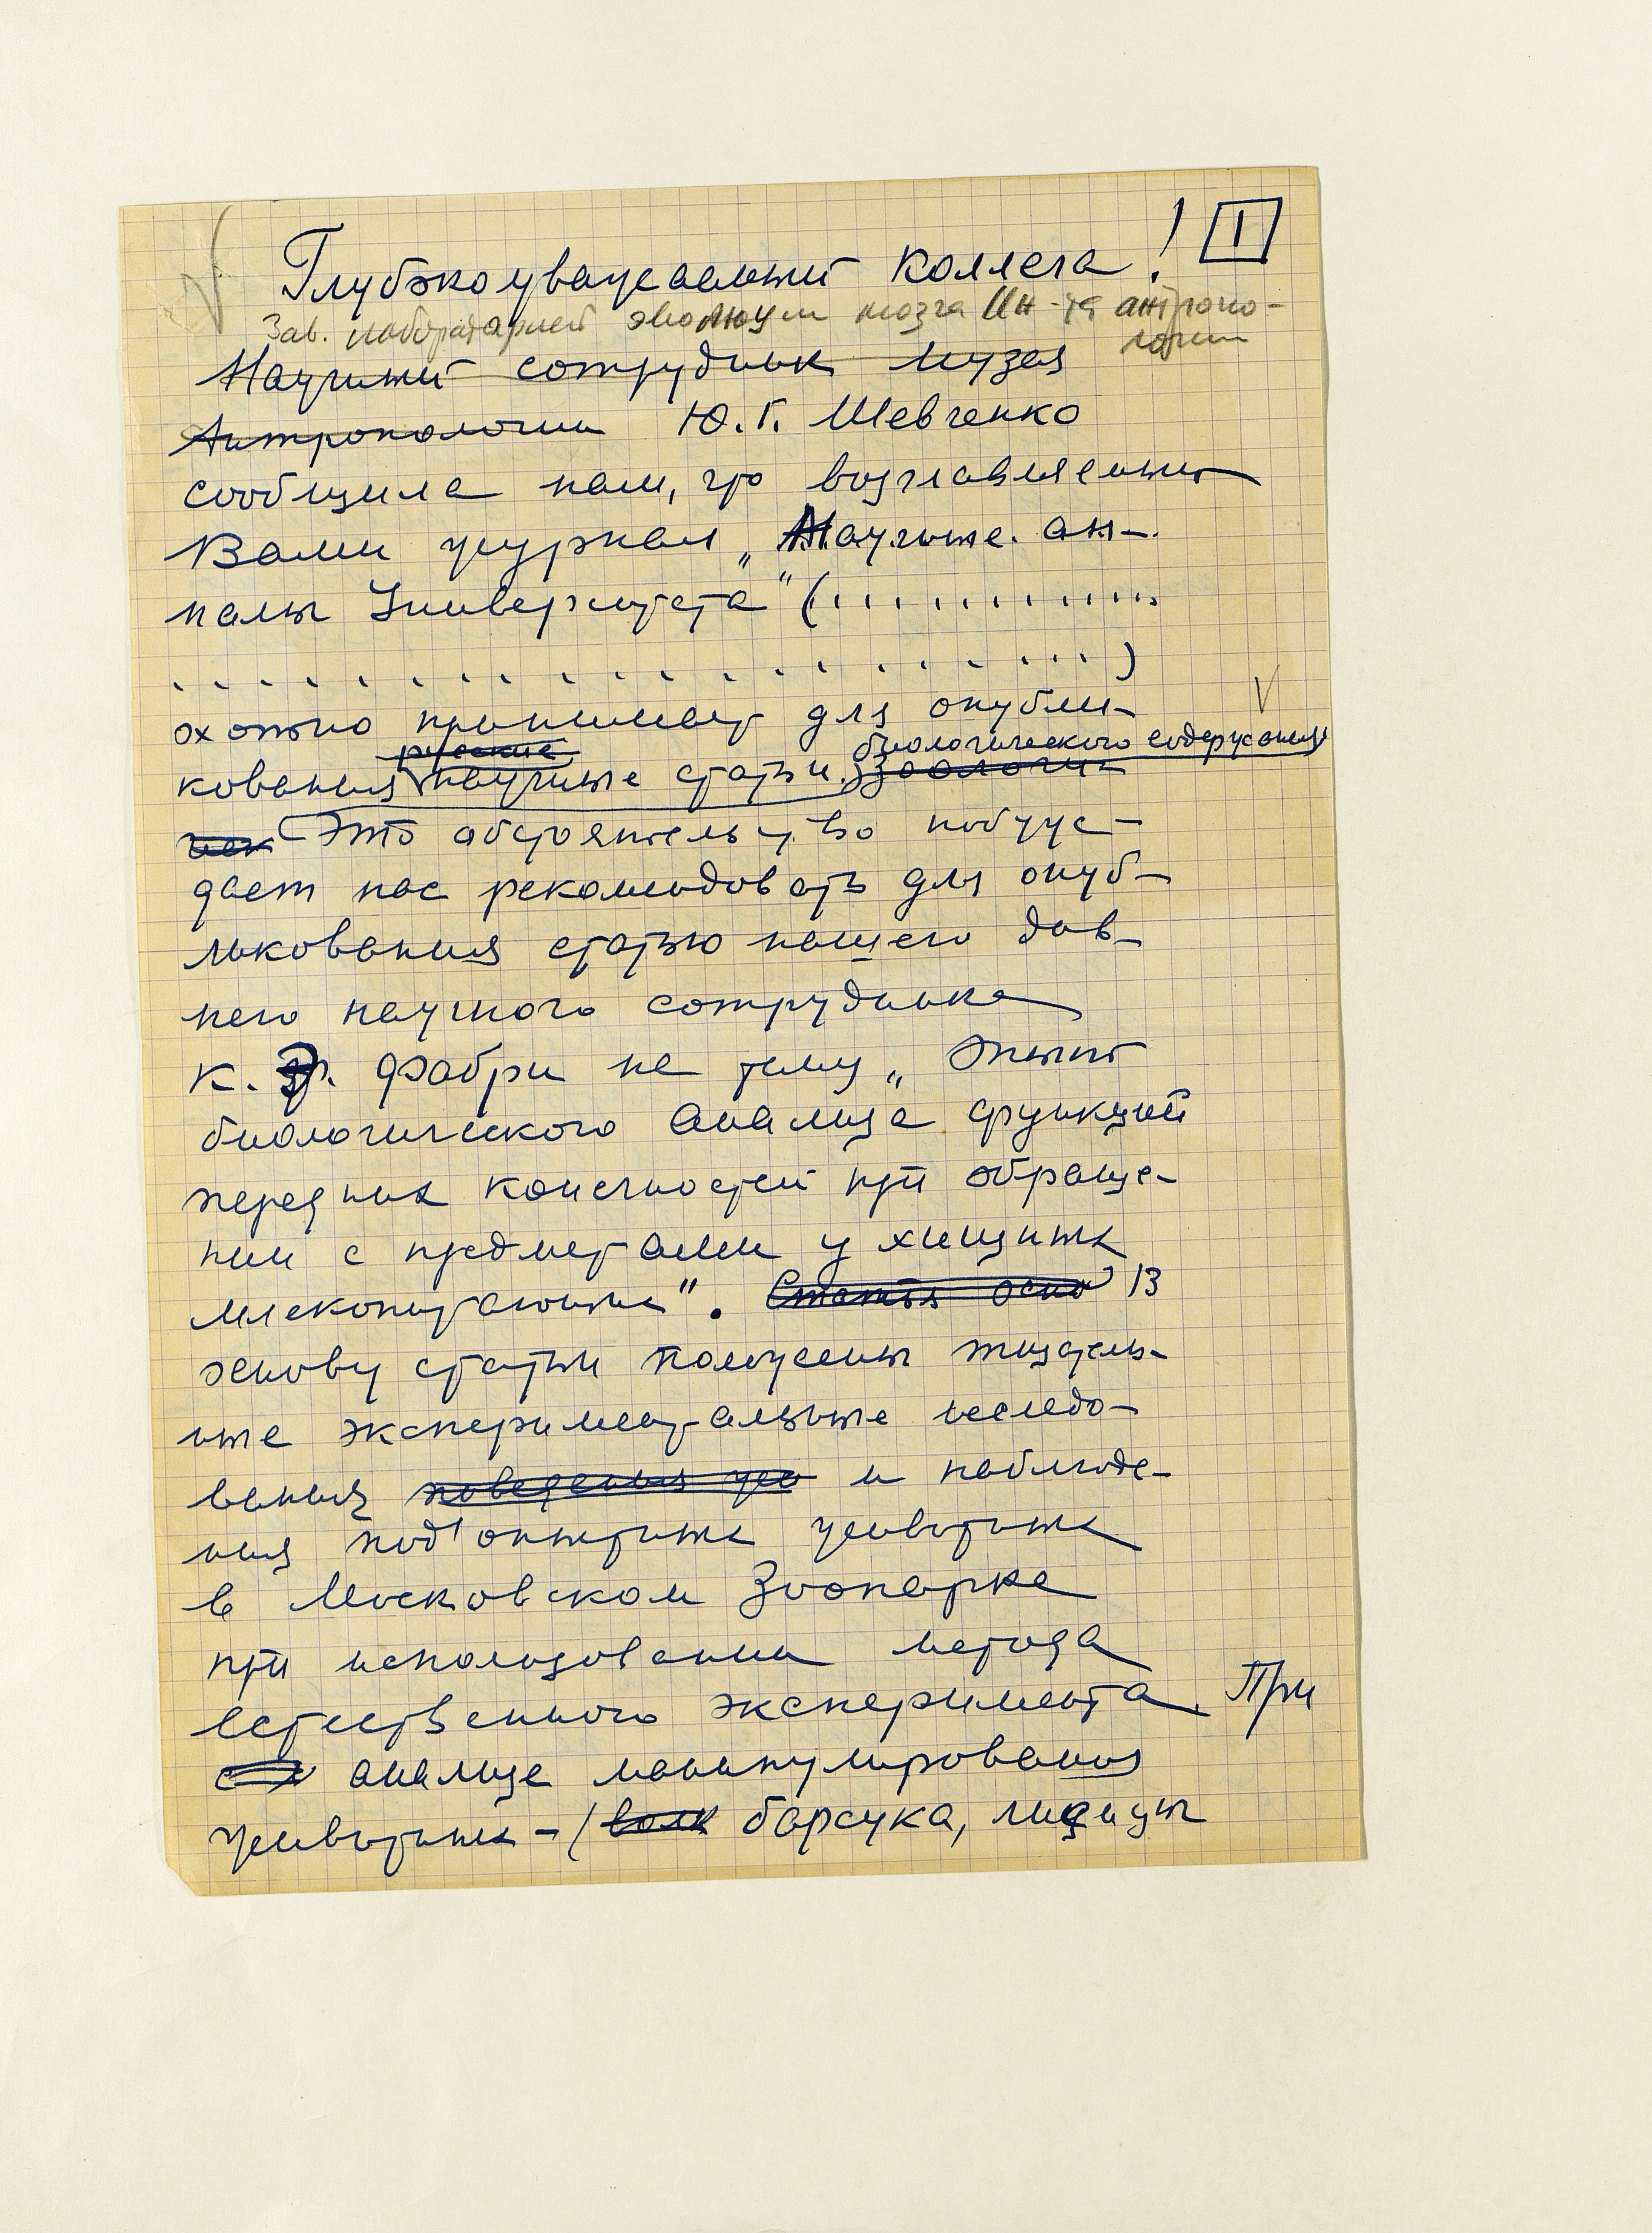 Глубокоуважаемый коллега! 1
Зав. лабораторией эволюции мозга Ин-та антропо-
логии
Научный сотрудник музея
Антропологии Ю.Г. Шевченко
сообщила нам, что возглавляемый
Вами журнал „Научные ан-
налы Университета" (.............
..................)
охотно принимает для опубли-
русские биологического содержания
кования научные статьи. Зоологи-
чек Это обстоятельство побуж-
дает нас рекомендовать для опуб-
ликования статью нашего дав-
него научного сотрудника
К. Э. Фабри на тему „Опыт
биологического анализа функций
передних конечностей при обраще-
нии с предметами у хищных
млекопитающих". Статья осно В
основу статьи положены тщатель-
ные экспериментальные исследо-
вания поведения жив и наблюде-
ния подопытных животных
в Московском Зоопарке
при использовании метода
естественного эксперимента. При
анализе манипулирования
животных – (волк барсука, лисицы